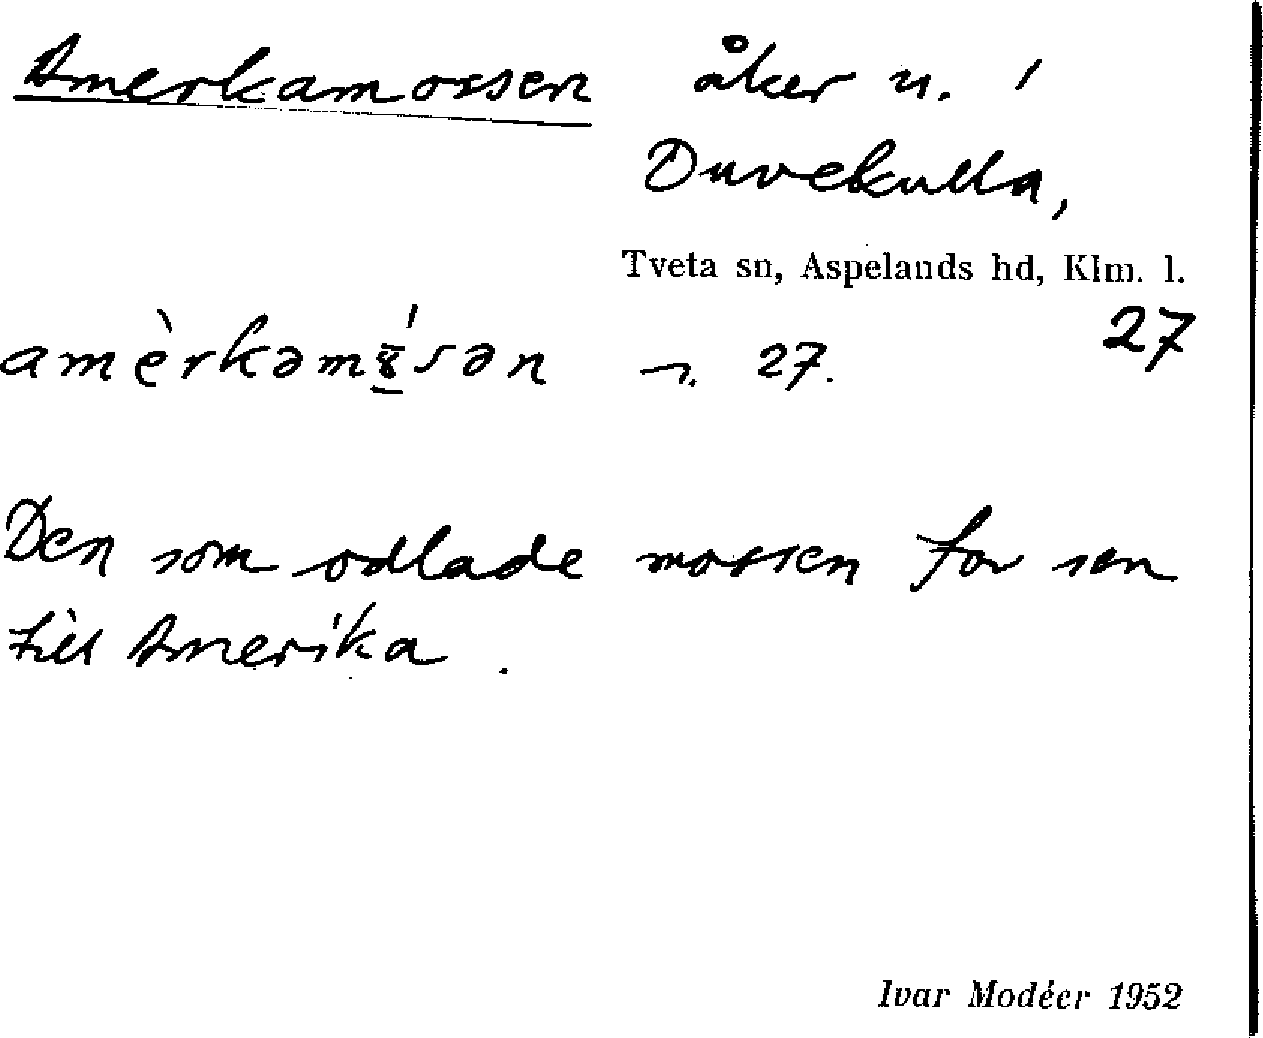 Amerkamossen åker n. 1
Duvekulla,
Tveta sn, Aspelands hd, Klm. l.
27
27.
Den som odlade mossen for sen
till Amerika.
Ivar Modéer 1952